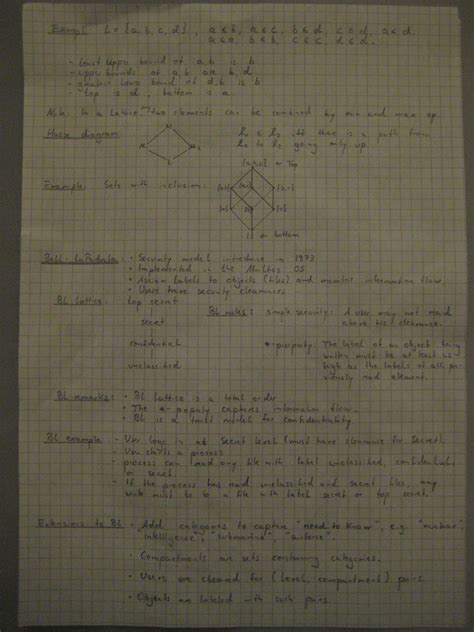 Example: L = {a, b, c, d}, a≤b, a≤c, b≤d, c≤d, a≤d,
a≤a, b≤b, c≤c, d≤d.
- least upper bound of a,b is b
- upper bounds of a,b are b,d
- greatest lower bound of d,b is b
- top is d, bottom is a.
Note: In a lattice, two elements can be combined by min and max op.
Hasse diagram:
l1 ≤ l2 iff there is a path from
l1 to l2 going only up!
Example: Sets with inclusion:
or Top
{} or bottom
Bell-LaPadula: • Security model introduce in 1973
• Implemented in the Multics OS
• Assign labels to objects (files) and monitor information flow
• Users have security clearances
BL lattice: top secret
secret
confidential
unclassified
BL rules: simple security: A user may not read
above his clearance.
*-property: The label of an object being
written must be at least as
high as the labels of all pre-
viously read element.
BL remarks: • BL lattice is a total order
• The *-property captures information flow.
• BL is a trust model for confidentiality
BL example - User logs in at Secret level (must have clearance for Secret).
- User starts a process
- process can read any file with label unclassified, confidential,
or secret.
- If the process has read unclassified and secret files, any
write must be to a file with label secret or top secret.
Extensions to BL • Add categories to capture "need to know", e.g. "nuclear",
"intelligence", "submarine", "airforce".
• Compartments are sets containing categories.
• Users are cleared for (level, compartment) pairs
• Objects are labeled with such pairs.